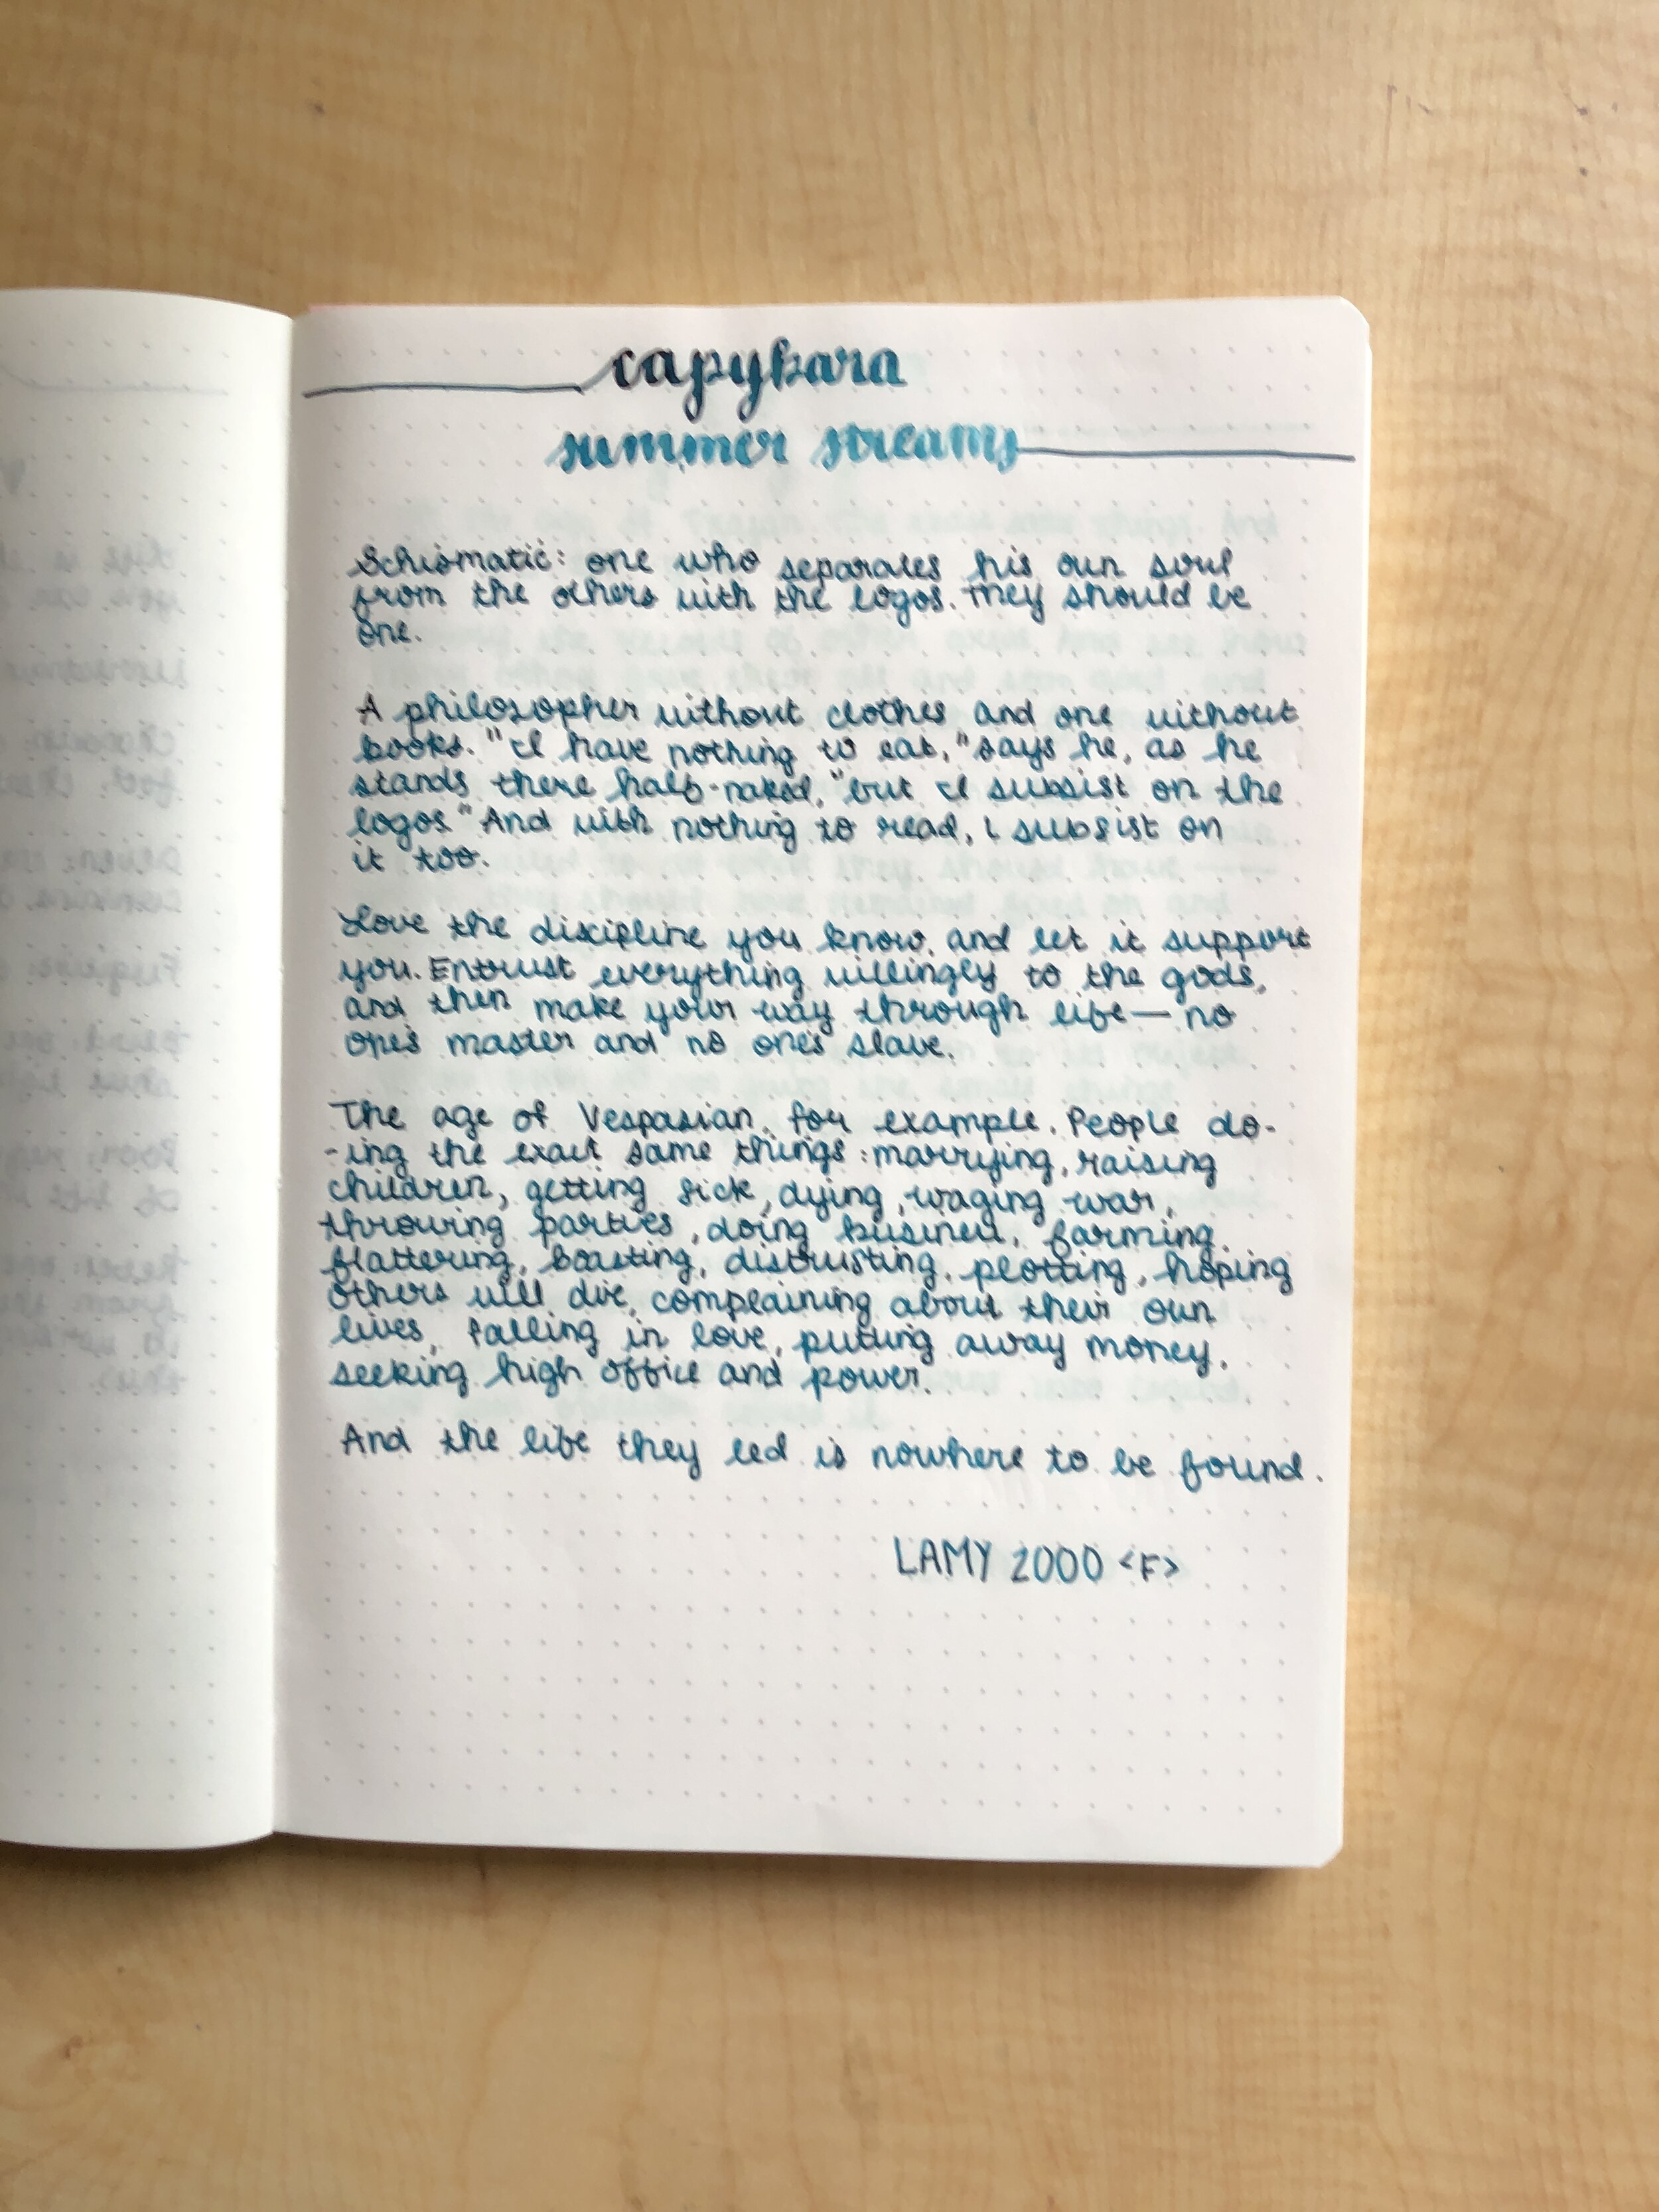 capybara
summer streams
Schismatic: one who separates his own soul
from the others with the logos. They should be
one.
A philosopher without clothes and one without
books. "I have nothing to eat," says he, as he
stands there half-naked, "but I subsist on the
logos." And with nothing to read, I subsist on
it too.
Love the discipline you know, and let it support
you. Entrust everything willingly to the gods,
and then make your way through life — no
one's master and no one's slave.
The age of Vespasian, for example. People do-
-ing the exact same things: marrying, raising
children, getting sick, dying, waging war,
throwing parties, doing business, farming,
flattering, boasting, distrusting, plotting, hoping
others will die, complaining about their own
lives, falling in love, putting away money,
seeking high office and power.
And the life they led is nowhere to be found.
LAMY 2000 <F>